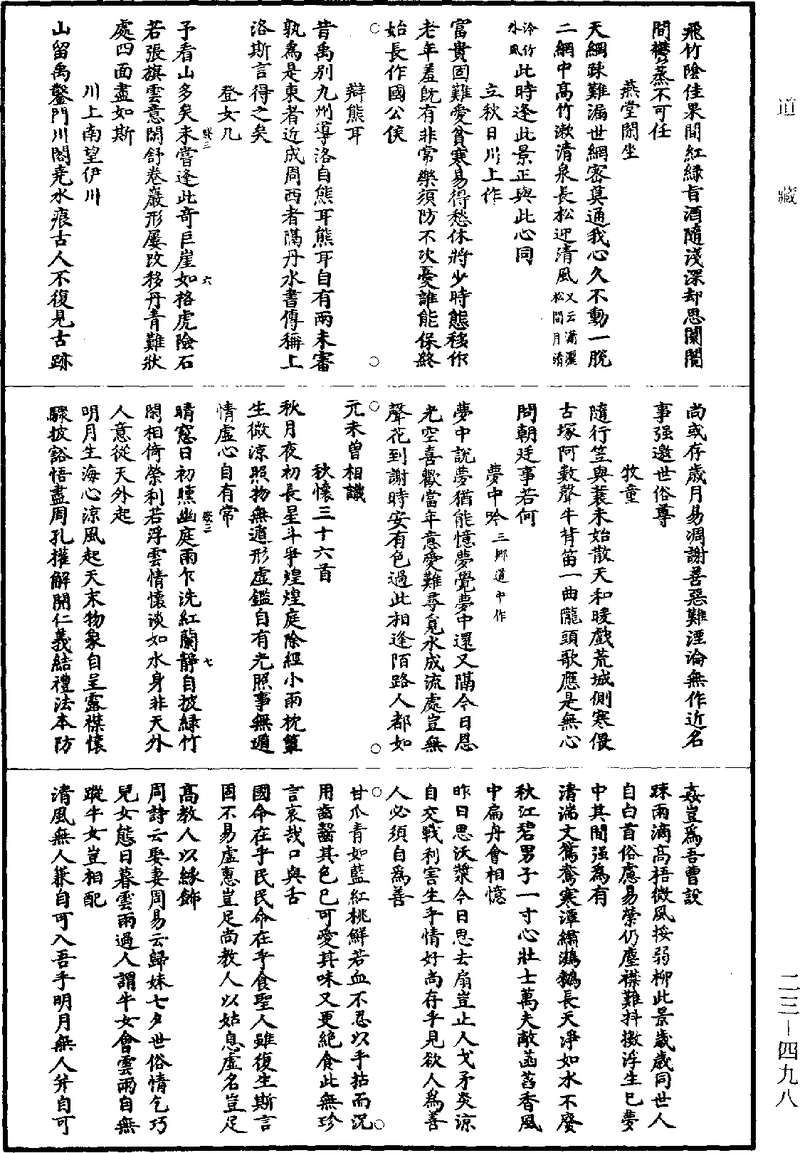 道藏
飛竹陰佳果間紅綠旨酒隨淺深却思闤闠
間鬱蒸不可任
燕堂閒坐
天網踈難漏世網密莫通我心久不動一脫
二網中高竹漱清泉長松迎清風又云瀟灑松間月清
泠竹外風此時逢此景正與此心同
立秋日川上作
富貴固難愛貧寒易得愁休將少時態移作
老年羞既有非常樂須防不次憂誰能保終
始長作國公侯
辯熊耳
昔禹別九州導洛自熊耳熊耳自有兩未審
孰爲是東者近成周西者隔丹水書傳稱上
洛斯言得之矣
登女几
予看山多矣未嘗逢此奇巨崖如格虎險石
若張旗雲意閒舒卷巖形屢改移丹青難狀
處四面盡如斯
川上南望伊川
山留禹鑿門川閣堯水痕古人不復見古跡
尚或存歲月易凋謝善惡難湮淪無作近名
事强邀世俗尊
牧童
隨行笠與蓑未始散天和暖戲荒城側寒偎
古塚阿數聲牛背笛一曲隴頭歌應是無心
問朝廷事若何
夢中吟三鄉道中作
夢中說夢猶能憶夢覺夢中還又隔今日恩
光空喜歡當年意愛難尋覓水成流處豈無
聲花到謝時安有色過此相逢陌路人都如
元未曾相識
秋懷三十六首
秋月夜初長星斗爭煌煌庭除經小雨枕簟
生微涼照物無遁形虛鑑自有光照事無遁
情虛心自有常
晴窓日初曛幽庭雨乍洗紅蘭靜自披綠竹
閒相倚榮利若浮雲情懷淡如水身非天外
人意從天外起
明月生海心涼風起天末物象自呈露襟懷
驟披豁悟盡周孔權解開仁義結禮法本防
姦豈爲吾曹設
踈雨滴高梧微風挼弱柳此景歲歲同世人
自白首俗慮易縈仍塵襟難抖擻浮生已夢
中其間强爲有
清湍文鴛鴦寒潭繡鸂鶒長天淨如水不廢
秋江碧男子一寸心壯士萬夫敵菡萏香風
中扁舟會相憶
昨日思沃漿今日思去扇豈止人戈矛炎涼
自交戰利害生乎情好尚存乎見欲人爲善
人必須自爲善
甘瓜青如藍紅桃鮮若血不忍以手拈而況
用齒齧其色已可愛其味又更絶食此無珍
言哀哉口與舌
國命在乎民民命在乎食聖人雖復生斯言
固不易虛惠豈足尚教人以姑息虛名豈足
高教人以緣飾
周詩云娶妻周易云歸妹七夕世俗情乞巧
兒女態日暮雲雨過人謂牛女會雲雨自無
蹤牛女豈相配
清風無人兼自可入吾手明月無人幷自可
二三-四九八